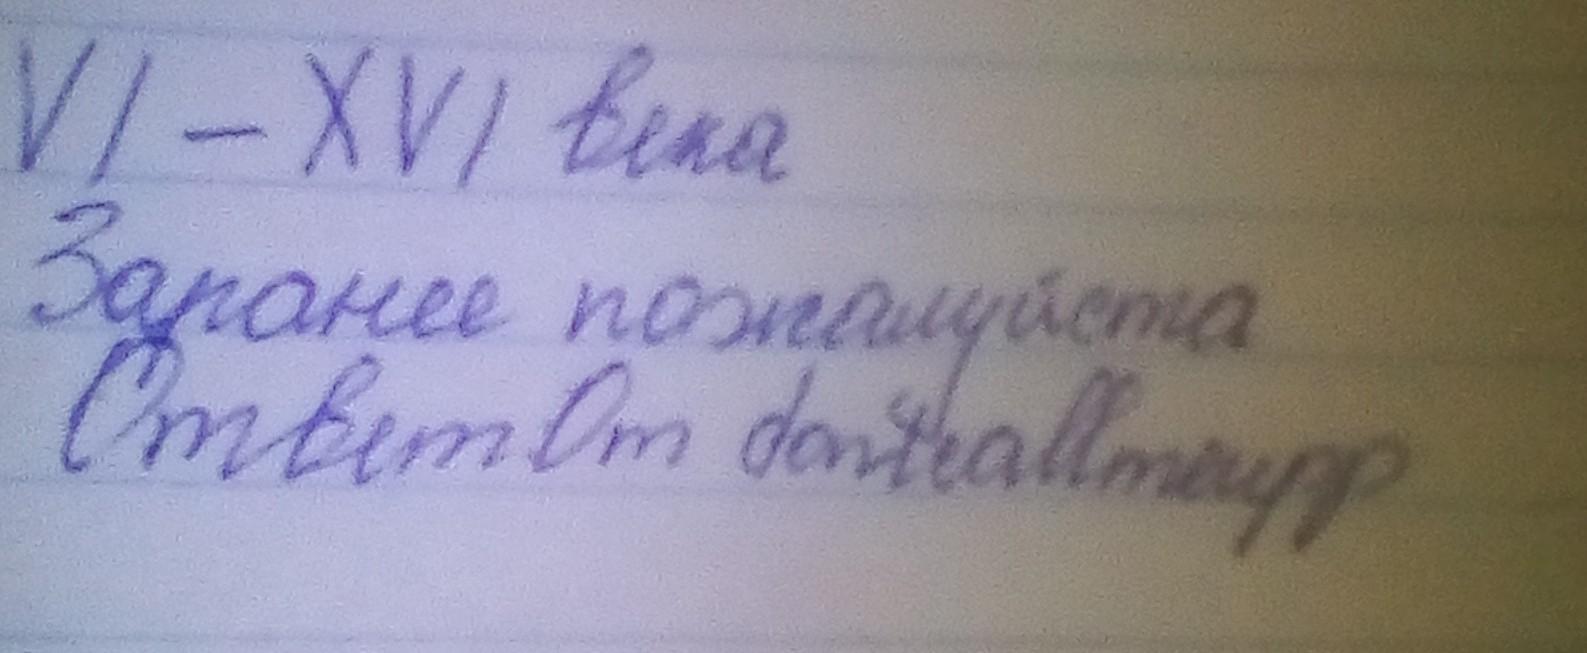 VI - XVI века
Заранее пожалуйста
Ответ От